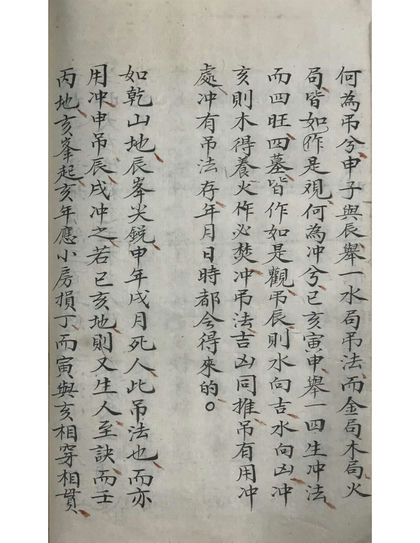 何為吊兮申子與辰舉一水局吊法而金局木局火
局皆如作是視何為冲兮巳亥寅申舉一四生冲法
而四旺四墓皆作如是觀吊辰則水向吉水向凶冲
亥則木得養火作必焚冲吊法吉凶同推吊有用冲
處冲有吊法存年月日時都会得來的。
如乾山地辰峯尖鋭申年戌月死人此吊法也而亦
用冲申吊辰戌冲之若巳亥地則又生人至訣而壬
丙地亥峯起亥年應小房損丁而寅與亥相穿相貫